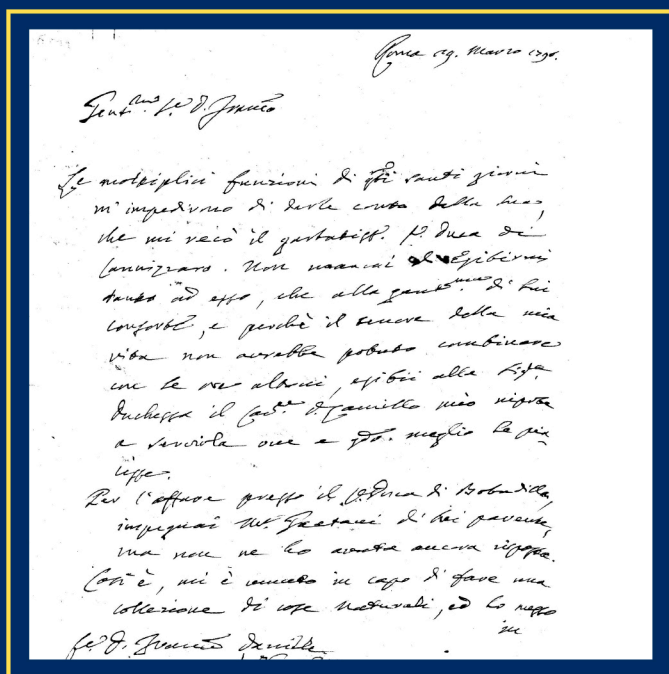 Roma 19. Marzo 1796.
Gent.mo Sr. D. Franco
Le moltiplici funzioni di qti santi giorni
m'impedirono di darle conto della sua,
che mi recò il garbatiss. Sr Duca di
Cannizzaro. Non mancai d'esibirmi
tanto ad esso, che alla gentma di lui
consorte, e perchè il tenore della mia
vita non avrebbe potuto combinare
con le ore altrui, esibii alla Sigra
Duchessa il Cavre D. Camillo mio nipote
a servirla ove e qdo. meglio le pia-
cesse.
Per l'affare presso il Sr. Duca di Bobadilla,
impegnai Mr Gaetani di lei parente,
ma non ne ho avuta ancora risposta.
Così è, mi è venuto in capo di fare una
collezione di cose naturali, ed ho messo
in
Sr. D. Franco Daniele